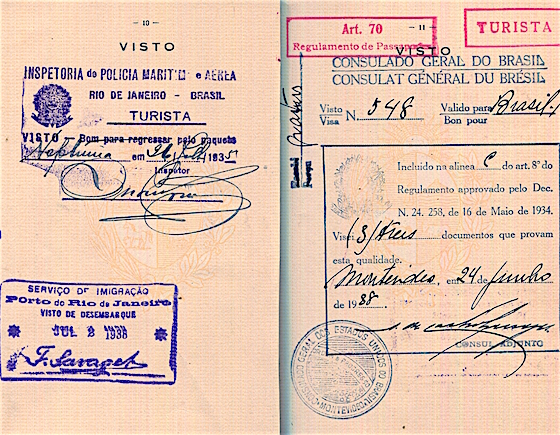 - 10 -
VISTO
INSPETORIA do POLICIA MARITIMA e AÉREA
RIO DE JANEIRO - BRASIL
TURISTA
VISTO - Bom para regressar pelo paquete
Neptunia em 193
Inspetor
SERVIÇO DE IMIGRAÇÃO
Porto do Rio de Janeiro
VISTO DE DESEMBARQUE
JUL 2 1938
F. Savaget
- 11 -
VISTO
Art. 70
Regulamento de Passaportes
TURISTA
CONSULADO GERAL DO BRASIL
CONSULAT GÉNÉRAL DU BRÉSIL
Visto
Visa N. 548 Valido para Brasil
Bon pour
Incluido na alinea C do art. 8º do
Regulamento approvado pelo Dec.
N. 24. 258, de 16 de Maio de 1934.
Visei (3) tres documentos que provam
esta qualidade.
Montevideo, em 24 de Junho
de 1938.
CONSUL ADJUNTO
CONSULADO GERAL DOS ESTADOS UNIDOS DO BRASIL
MONTEVIDEO